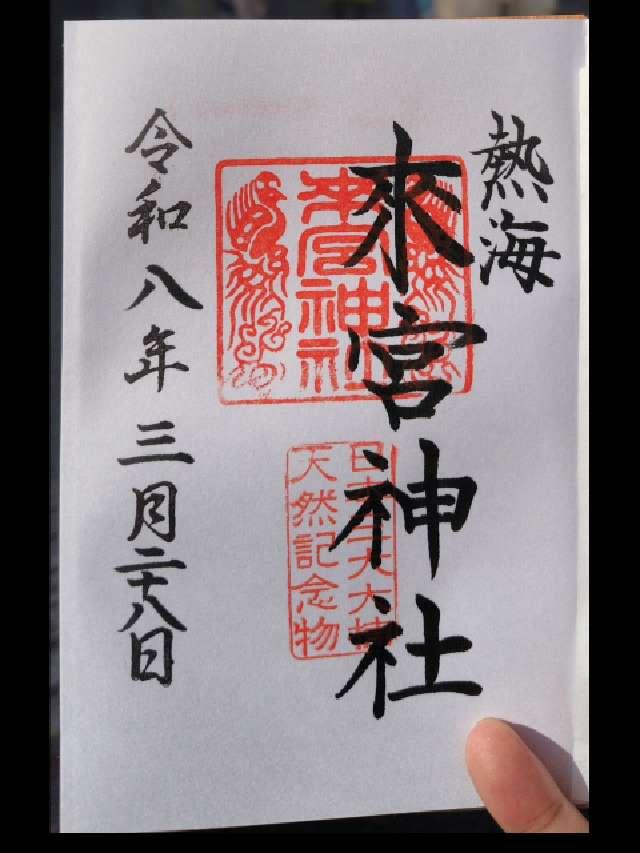 熱海
來宮神社
來宮神社
日本三大大楠
天然記念物
令和八年三月二十八日